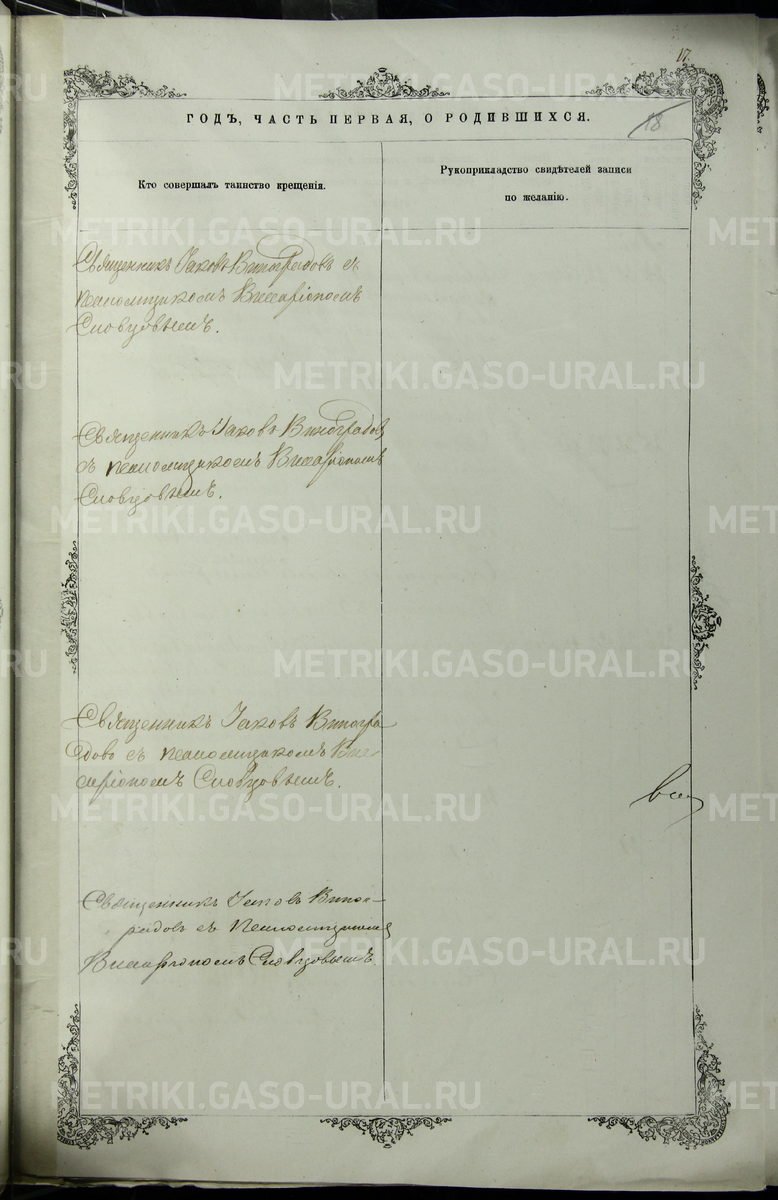 17.
18
ГОДЪ, ЧАСТЬ ПЕРВАЯ, О РОДИВШИХСЯ.
Кто совершалъ таинство крещенія.
Рукоприкладство свидѣтелей записи
по желанію.
Священникъ Іаковъ Виноградовъ съ
псаломщикомъ Виссаріономъ
Словцовымъ.
Священникъ Іаковъ Виноградовъ
съ псаломщикомъ Виссаріономъ
Словцовымъ.
Священникъ Іаковъ Виногра
довъ съ псаломщикомъ Вис
саріономъ Словцовымъ.
Священникъ Іаковъ Виног-
радовъ съ Псаломщикомъ
Виссаріономъ Словцовымъ.
METRIKI.GASO-URAL.RU